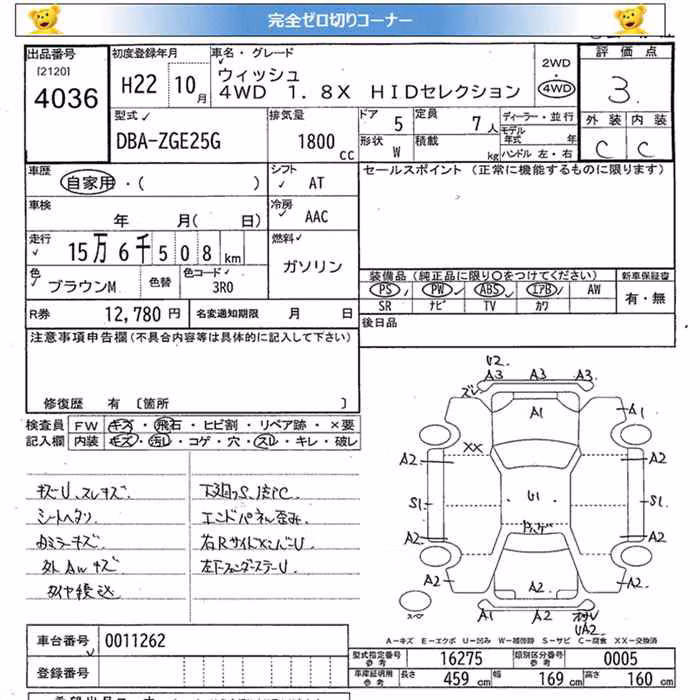 完全ゼロ切りコーナー
出品番号
[2120]
4036
初度登録年月
H22 10月
車名・グレード
ウィッシュ
4WD 1.8X HIDセレクション
2WD
4WD
評価点
3
外装 内装
C C
型式
DBA-ZGE25G
排気量
1800 cc
ドア 5
形状 W
定員 7人
積載 kg
ディーラー・並行
モデル年式 年
ハンドル 左・右
車歴
自家用・( )
シフト
AT
セールスポイント (正常に機能するものに限ります)
車検
年 月( 日)
冷房
AAC
走行
15万6千508km
燃料
ガソリン
色
ブラウンM
色替
色コード
3R0
装備品 (純正品に限り○をつけてください)
PS PW ABS エアB AW
SR ナビ TV カワ
新車保証書
有・無
R券 12,780円
名変通知期限 月 日
後日品
注意事項申告欄(不具合内容等は具体的に記入して下さい)
修復歴 有 〔箇所 〕
検査員記入欄
FW キズ・飛石・ヒビ割・リペア跡・×要
内装 キズ・汚レ・コゲ・穴・スレ・キレ・破レ
キズU、スレキズ
シートヘタリ
カミラーキズ
外AWキズ
下廻りS、法PC
エンドパネル歪み
右RサイドメンバーU
左下フェンダーステーU
U2
A3 A3 A3
ズレ
A1 A1
XX
A2 A2
S1 U1 S1
Pハゲ
A2 A2
A2 A2 A2
スペ
A1 A2
UA2
A-キズ E-エクボ U-凹み W-補修跡 S-サビ C-腐食 XX-交換済
車台番号 0011262
登録番号
型式指定番号 参考 16275
類別区分番号 参考 0005
車庫証明用 参考 長さ 459 cm 幅 169 cm 高さ 160 cm